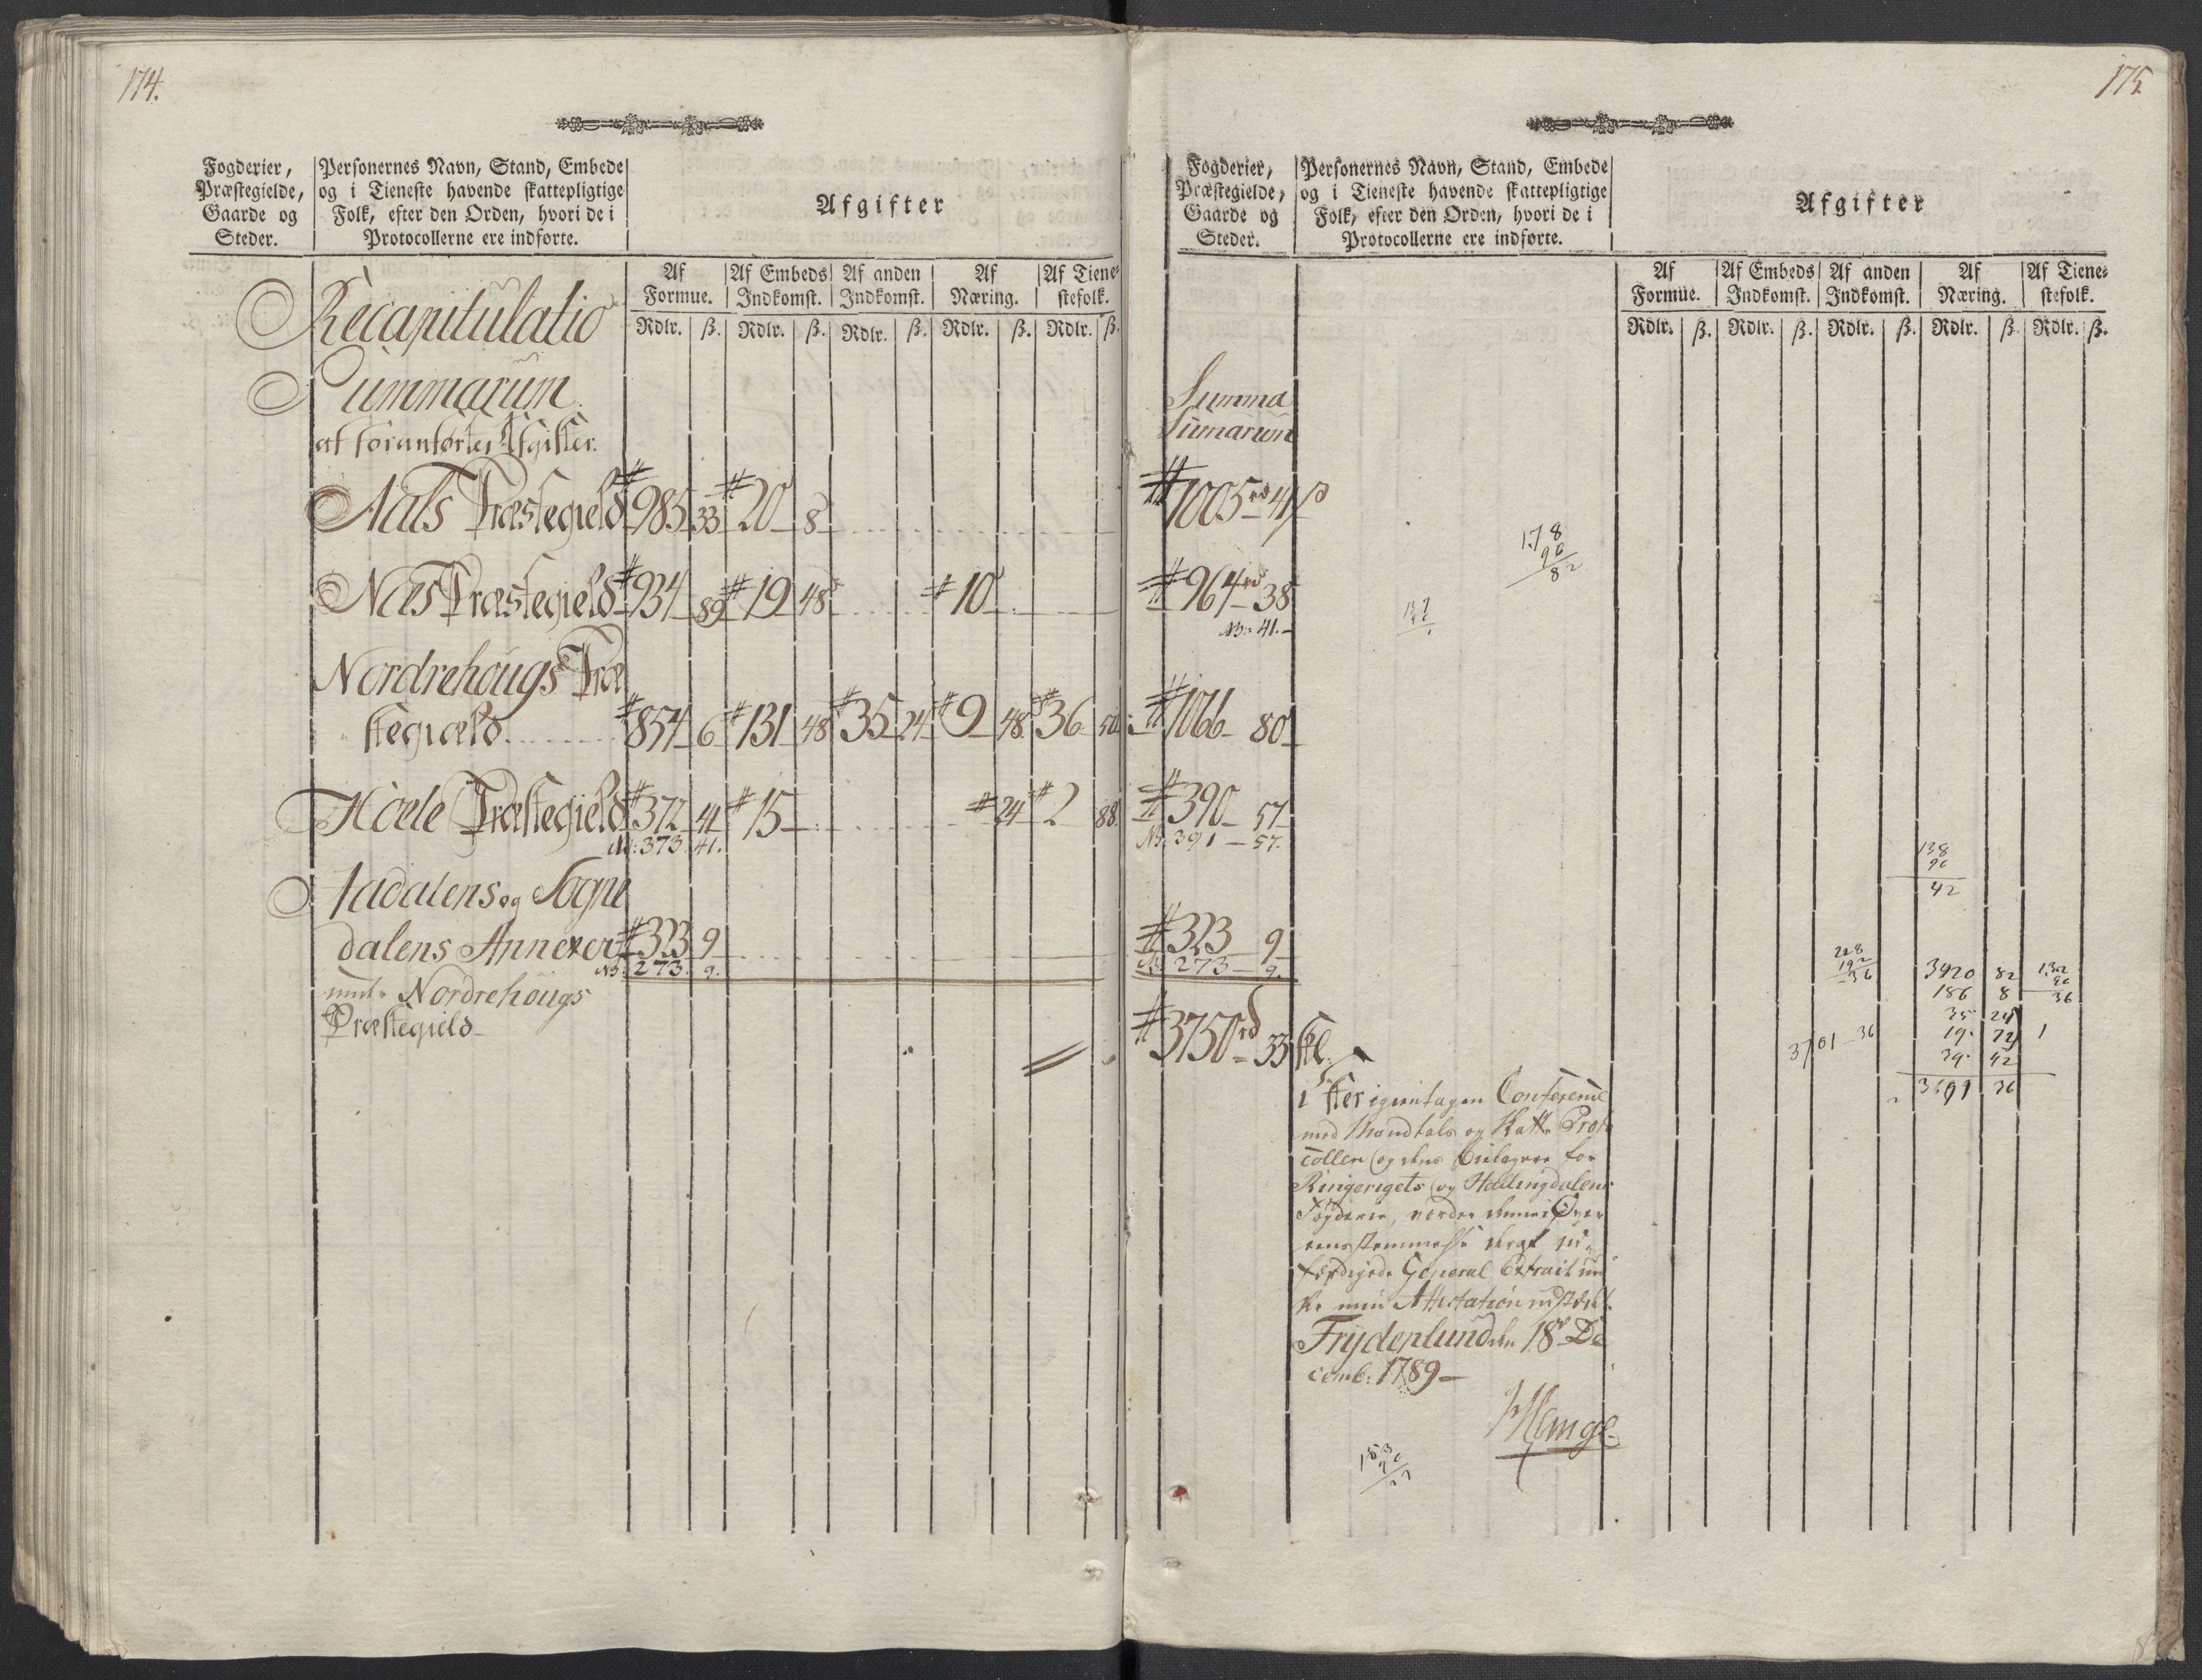 174.
Fogderier,
Præstegielde,
Gaarde og
Steder.
Personernes Navn, Stand, Embede
og i Tieneste havende skattepligtige
Folk, efter den Orden, hvori de i
Protocollerne ere indførte.
Afgifter
Af Formue. Af Embeds Indkomst. Af anden Indkomst. Af Næring. Af Tienestefolk.
Rdlr. ß. Rdlr. ß. Rdlr. ß. Rdlr. ß. Rdlr. ß.
Recapitulatio
Summarum
af foranførter Afgifter.
Aals Præstegield # 985 33 # 20 8
Næs Præstegield # 934 89 # 19 48 # 10
Nordrehougs Præ
stegiæld # 854 6 # 131 48 # 35 24 # 9 48 # 36 50
Hoele Præstegield # 372 41 # 15 # 24 # 2 88
NB: 373. 41.
Aadalens og Sogne
dalens Annexer # 323 9
NB: 273. 9.
under Nordrehougs
Præstegield
175
Fogderier,
Præstegielde,
Gaarde og
Steder.
Personernes Navn, Stand, Embede
og i Tieneste havende skattepligtige
Folk, efter den Orden, hvori de i
Protocollerne ere indførte.
Afgifter
Af Formue. Af Embeds Indkomst. Af anden Indkomst. Af Næring. Af Tienestefolk.
Rdlr. ß. Rdlr. ß. Rdlr. ß. Rdlr. ß. Rdlr. ß.
Summa
Sumarum
# 1005 rd 41 ß
178
96
82
# 964 rd 38
NB: 41.
# 1066 80
# 390 57
NB: 391 57.
138
96
42
# 323 9
NB 273 9.
# 3750 rd 33 sk.
228
192
36
3420 82
186 8
35 24
19 72
39 42
3691 36
132
96
36
1
3701 36
Efter igiennemtagen Conference
med Mandtals og Skatte Proto
collen og dens Bielagger for
Ringerigets og Hallingdalens
Fogderie, vorder denne i Over
eensstemmelse deraf ud
færdigede General Extract un
der min Attestation udstædt.
Frydenlund den 18de De
cemb: 1789